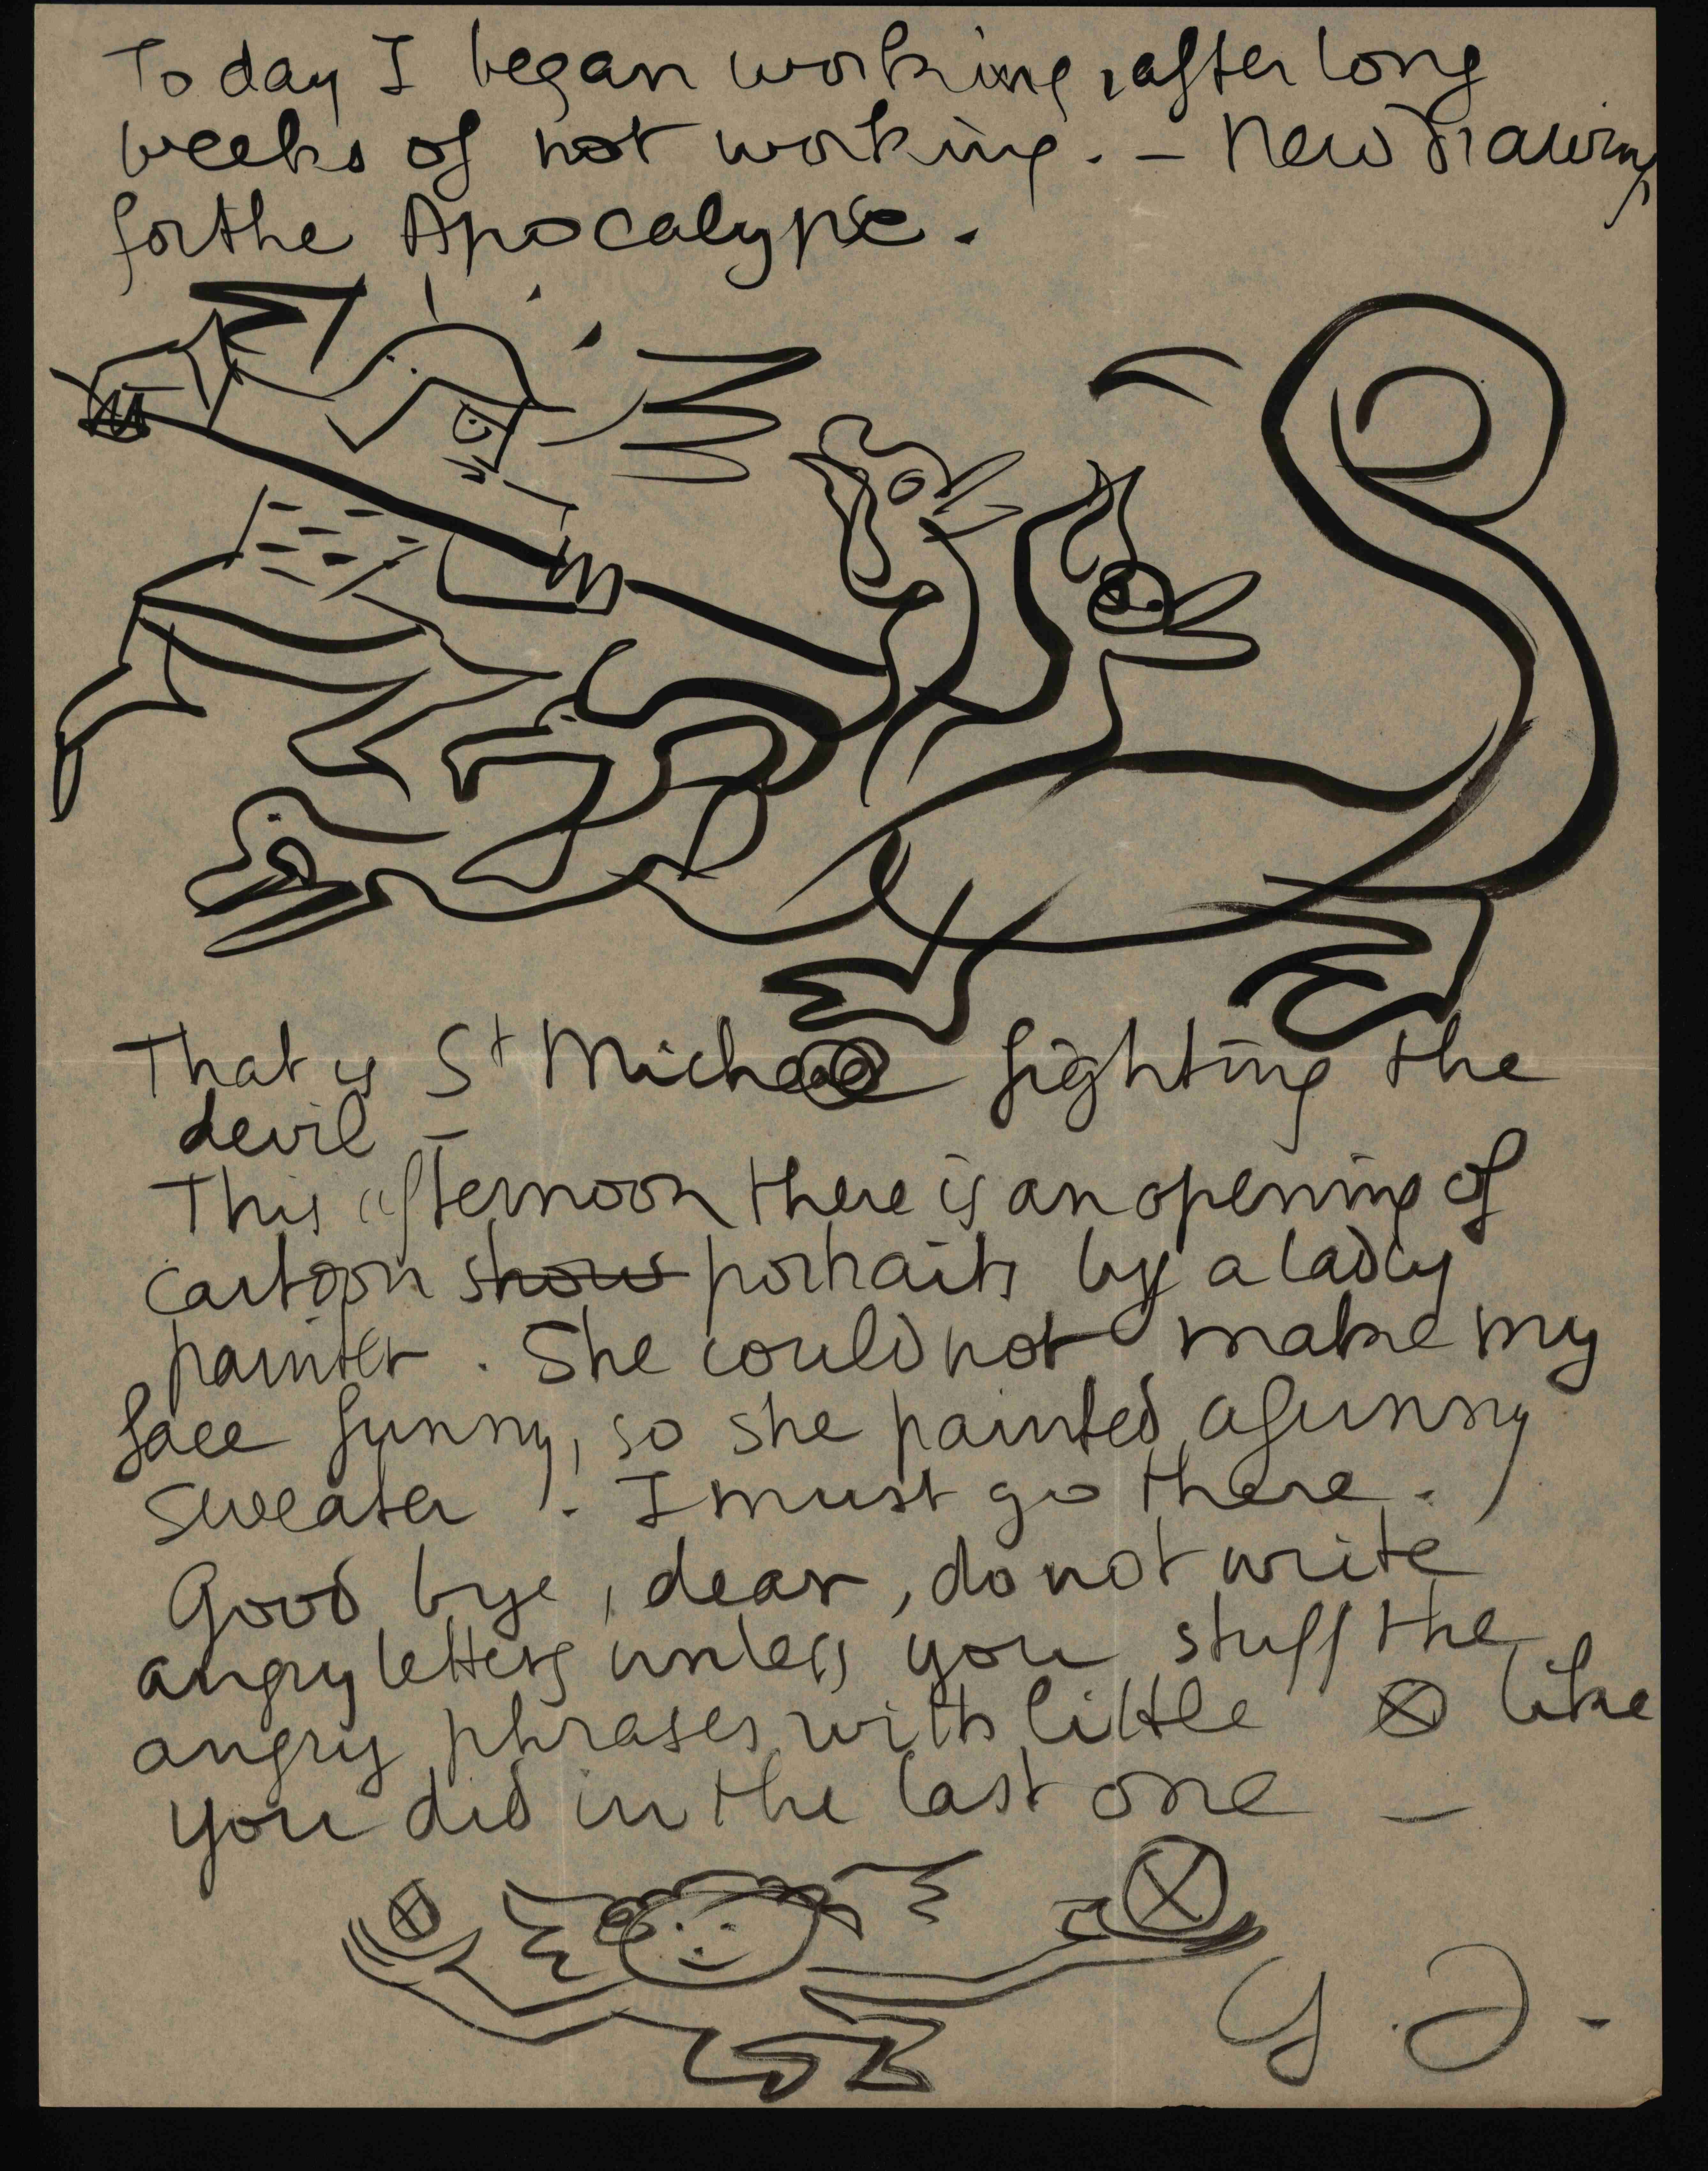 Today I began working, after long
weeks of not working. – New Drawings
for the Apocalypse.
That is St Michael fighting the
devil –
This afternoon there is an opening of
cartoon show portraits by a lady
painter. She could not make my
face funny, so she painted a funny
sweater. I must go there.
Good bye, dear, do not write
angry letters unless you stuff the
angry phrases with little ⊗ like
you did in the last one –